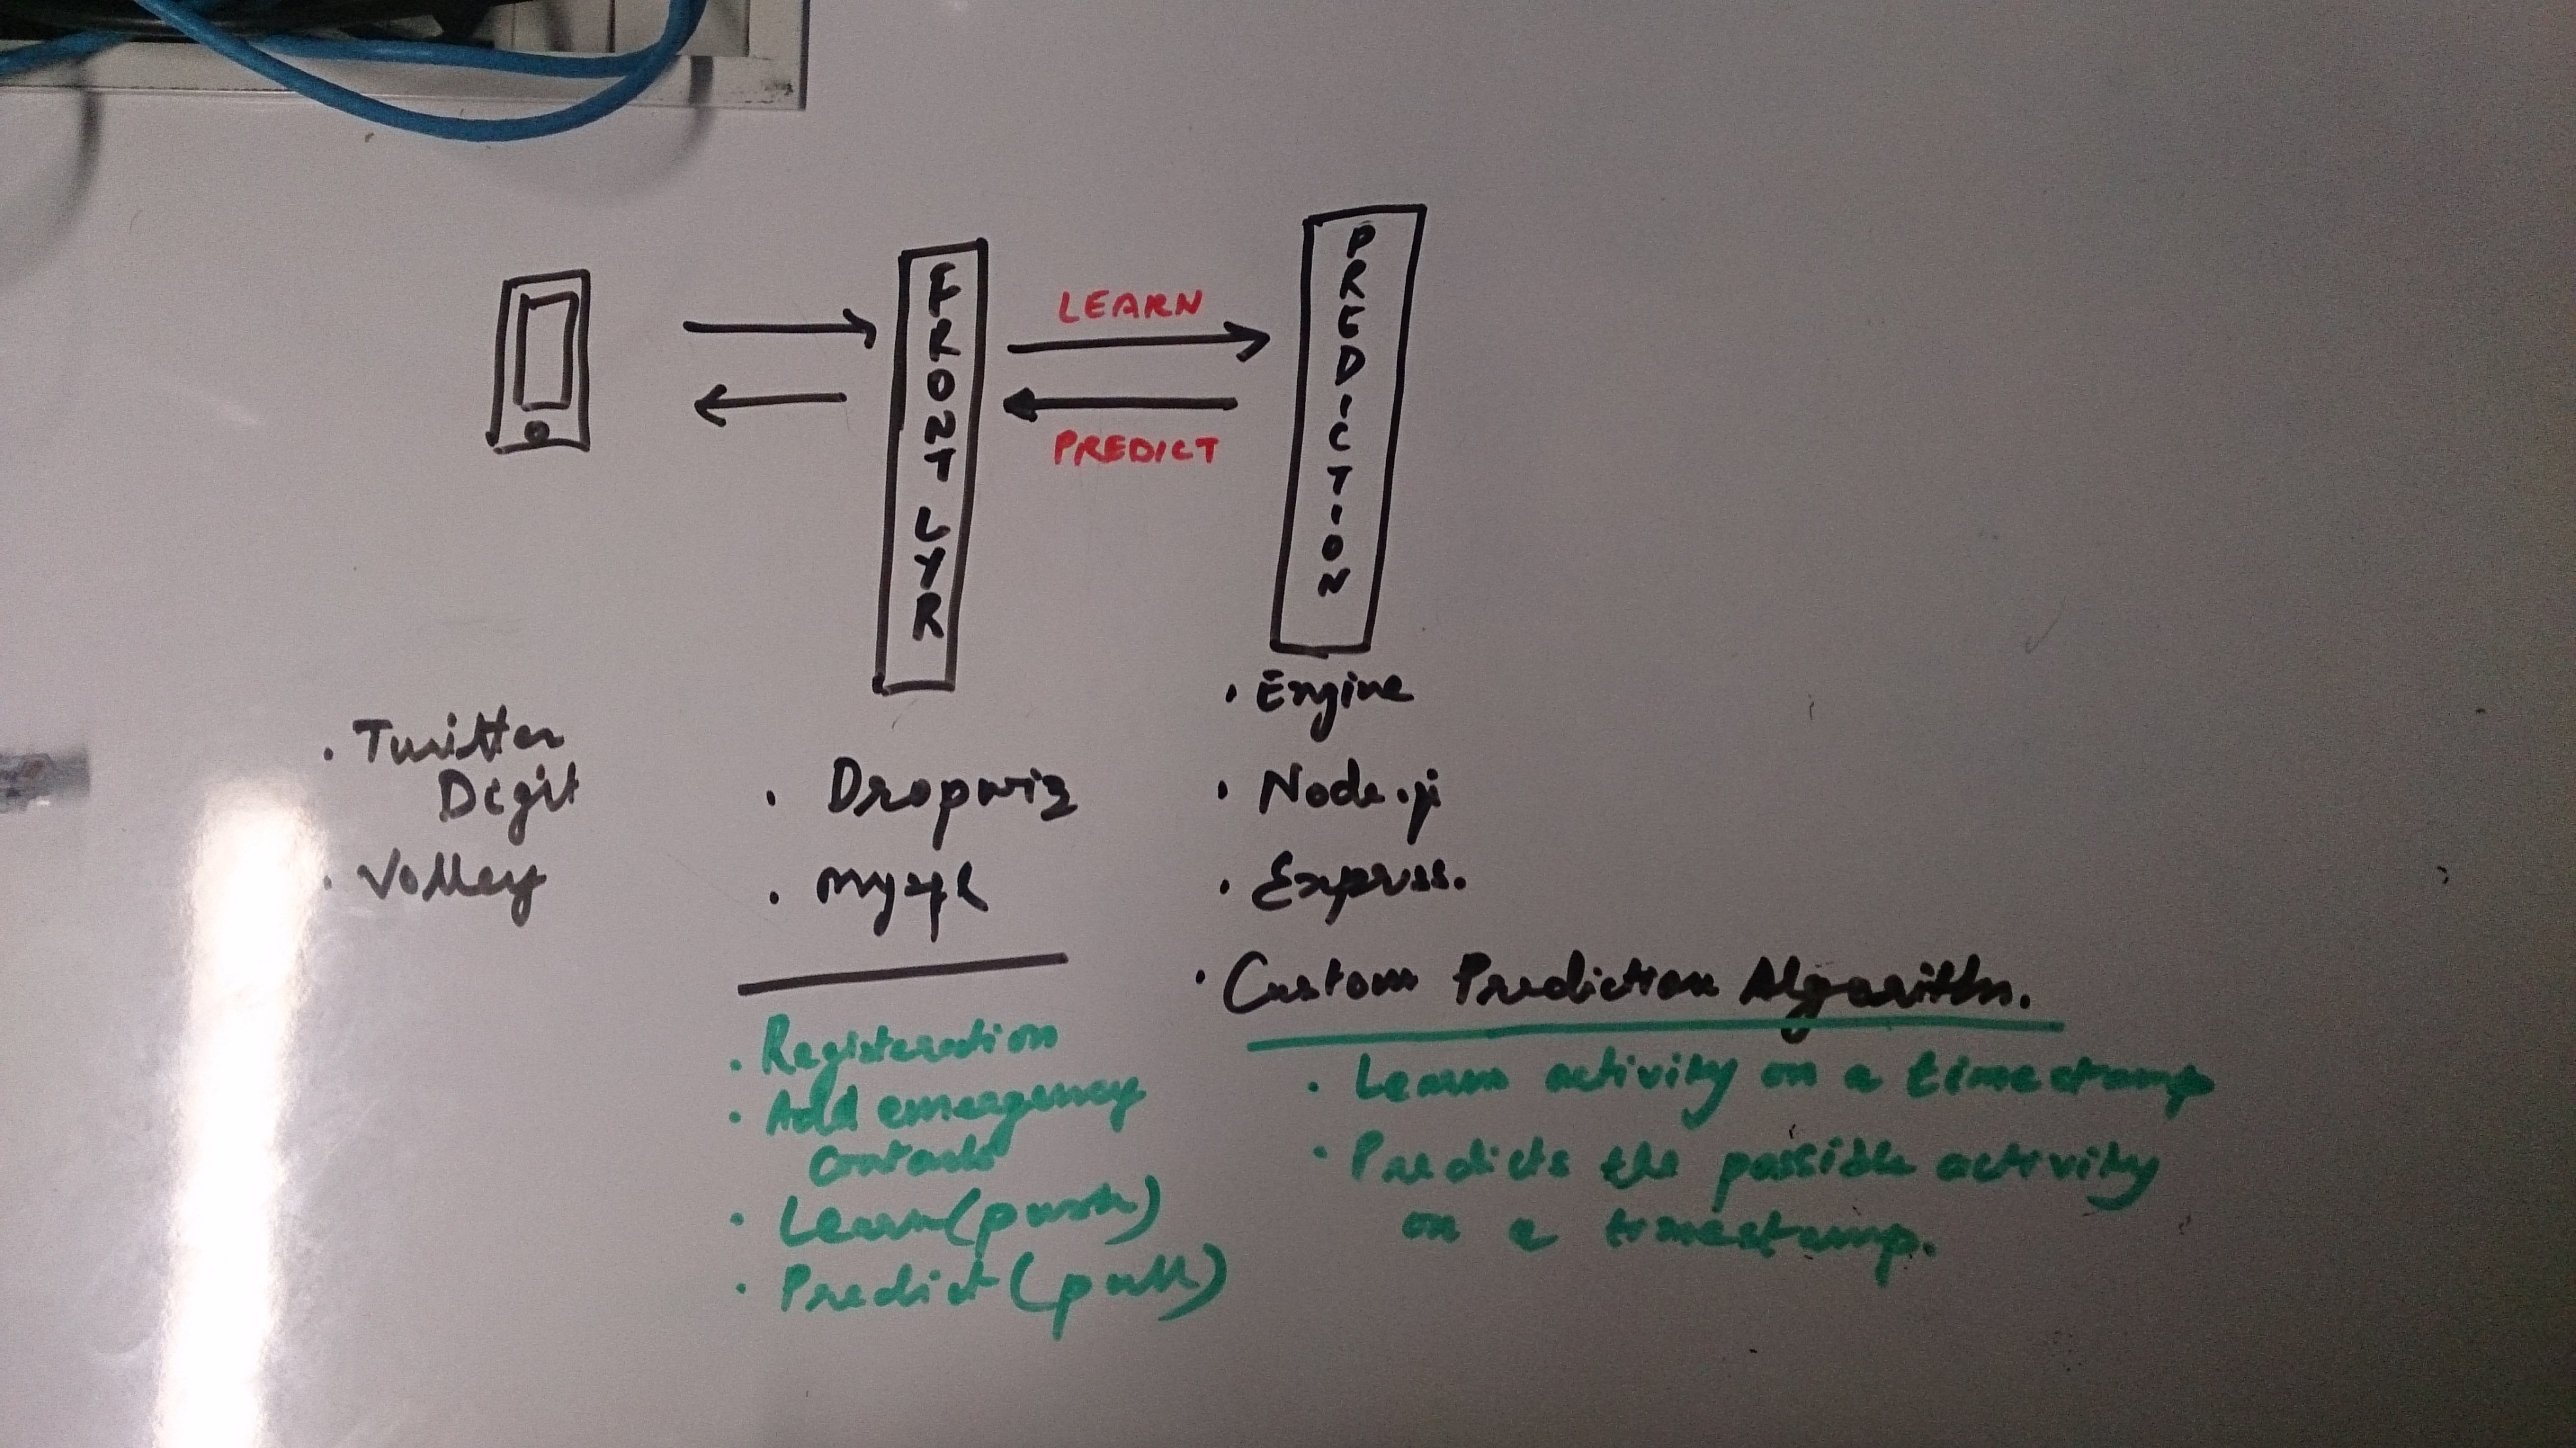 FRONT LYR
LEARN
PREDICT
PREDICTION
. Twitter
Digit
. Volley
. Dropwiz
. mysql
. Registeration
. Add emergency
Contacts
. Learn (push)
. Predict (pull)
. Engine
. Node.js
. Express.
. Custom Prediction Algorithm.
. Learn activity on a timestamp
. Predicts the possible activity
on a timestamp.